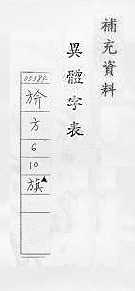 補充資料
異體字表
方
6
10
旗▲